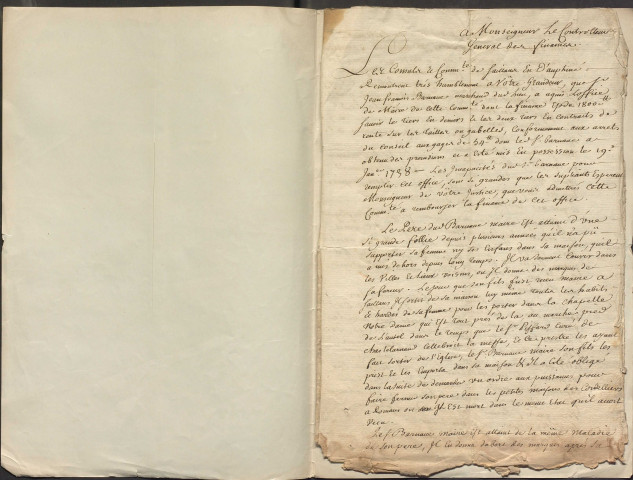 A Monseigneur Le Controlleur
General des finances
Les Consuls et Commté de Saillans En Dauphiné
Remontrent très humblement a Votre Grandeur, que Sr
Jean francois Barnave marchand dud. lieu, a aquis l'office
de Maire de cette Commté dont la finance est de 1800 tt
savoir le tiers en deniers et les deux tiers en contrats de
rente sur les tailles ou gabelles, conformement aux arrets
du conseil aux gages de 54 tt dont le Sr Barnave a
obtenu des provisions et a eté mis en possession le 19e
Janer 1738 Les Incapacités du Sr Barnave pour
remplir cet office, sont si grandes que les supliants Esperent
Monseigneur de votre Justice, que vous admettres cette
Commté a rembourser la finance de cet office.
Le Pere dud. Barnave maire est atteint d'une
si grande follie depuis plusieurs années qu'il n'a pû
supporter sa femme ny ses Enfans dans sa maison, qu'il
a mis dehors depuis long temps. Il va souvent courir dans
les Villes et lieux voisins, ou Il donne des marques de
sa fureur. Le jour que son fils fut recu maire a
Saillans Il sortit de sa maison luy même toutes les habits
et hardes de sa femme pour les porter dans la chapelle
Notre dame qui est tout près de la, au marché pied
de l'autel dans le temps que le Sr Liffard curé de
chastelarnaud cellebroit la messe, et les prestre les ayant
fait sortir de l'Eglise, le Sr Barnave maire son fils les
prit et les emporta dans sa maison Il a eté obligé
dans la suite de demander un ordre aux puissances pour
faire fermer son pere dans les petites maisons des Cordelliers
a Romans ou Il Est mort dans le meme etat qu'il avoit
Vecu.
Le Sr Barnave maire est atteint de la même Maladie
de son pere, Il en donna dabord des marques après sa